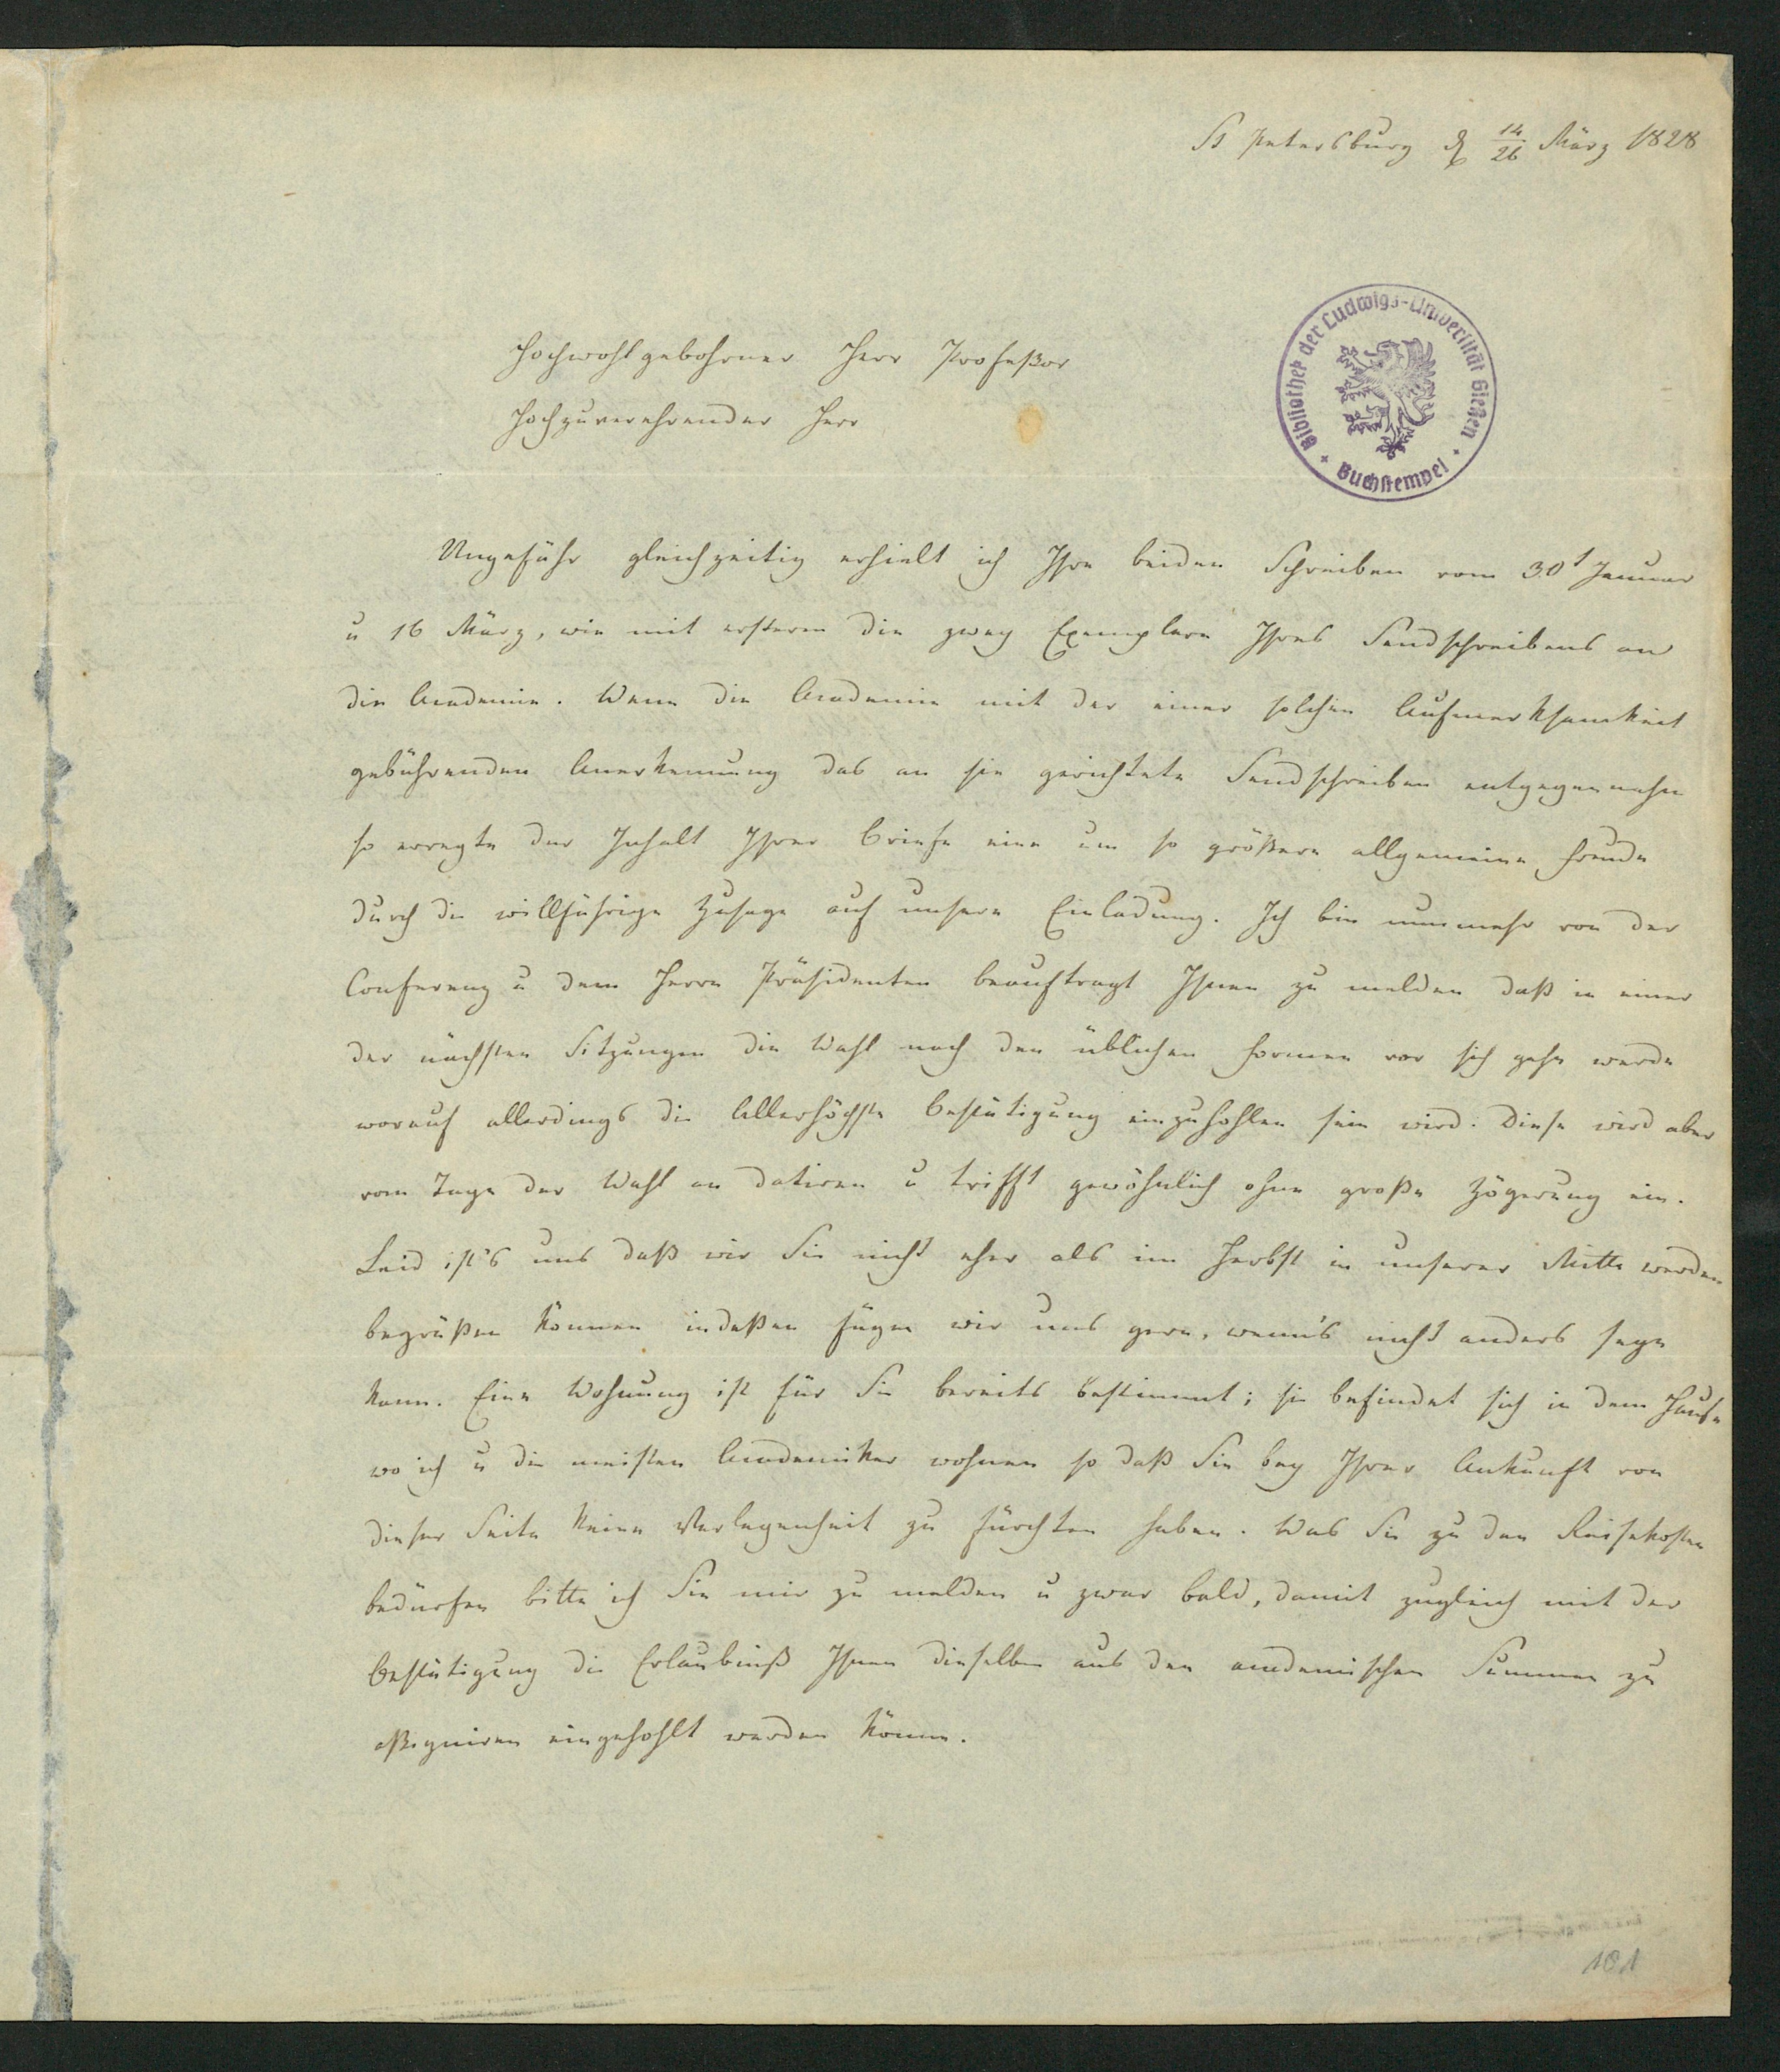 St Petersburg d 14/26 März 1828
Hochwohlgebohrner Herr Profeßor
Hochzuverehrender Herr
Bibliothek der Ludwigs-Universität Gießen
+ Buchstempel +
Ungefähr gleichzeitig erhielt ich Ihre beiden Schreiben vom 30t Januar
u 16 März, wie mit ersterem die zwey Exemplare Ihres Sendschreibens an
die Academie. Wenn die Academie mit der einer solchen Aufmerksamkeit
gebührenden Anerkennung das an sie gerichtete Sendschreiben entgegennahm
so erregte der Inhalt Ihrer Briefe eine um so größere allgemeine Freude
durch die willfährige Zusage auf unsere Einladung. Ich bin nunmehr von der
Conferenz u dem Herrn Präsidenten beauftragt Ihnen zu melden daß in einer
der nächsten Sitzungen die Wahl nach den üblichen Formen vor sich gehn werde
worauf allerdings die Allerhöchste Bestätigung einzuhohlen sein wird. Diese wird aber
vom Tage der Wahl an datiren u trifft gewöhnlich ohne große Zögerung ein.
Leid ist's uns daß wir Sie nicht eher als im Herbst in unserer Mitte werden
begrüßen können indeßen fügen wir uns gern, wenn's nicht anders seyn
kann. Eine Wohnung ist für Sie bereits bestimmt; sie befindet sich in dem Hause
wo ich u die meisten Academiker wohnen so daß Sie bey Ihrer Ankunft von
dieser Seite keine Verlegenheit zu fürchten haben. Was Sie zu den Reisekosten
bedürfen bitte ich Sie mir zu melden u zwar bald, damit zugleich mit der
Bestätigung die Erlaubniß Ihnen dieselben aus den academischen Summen zu
aßigniren eingehohlt werden könne.
101